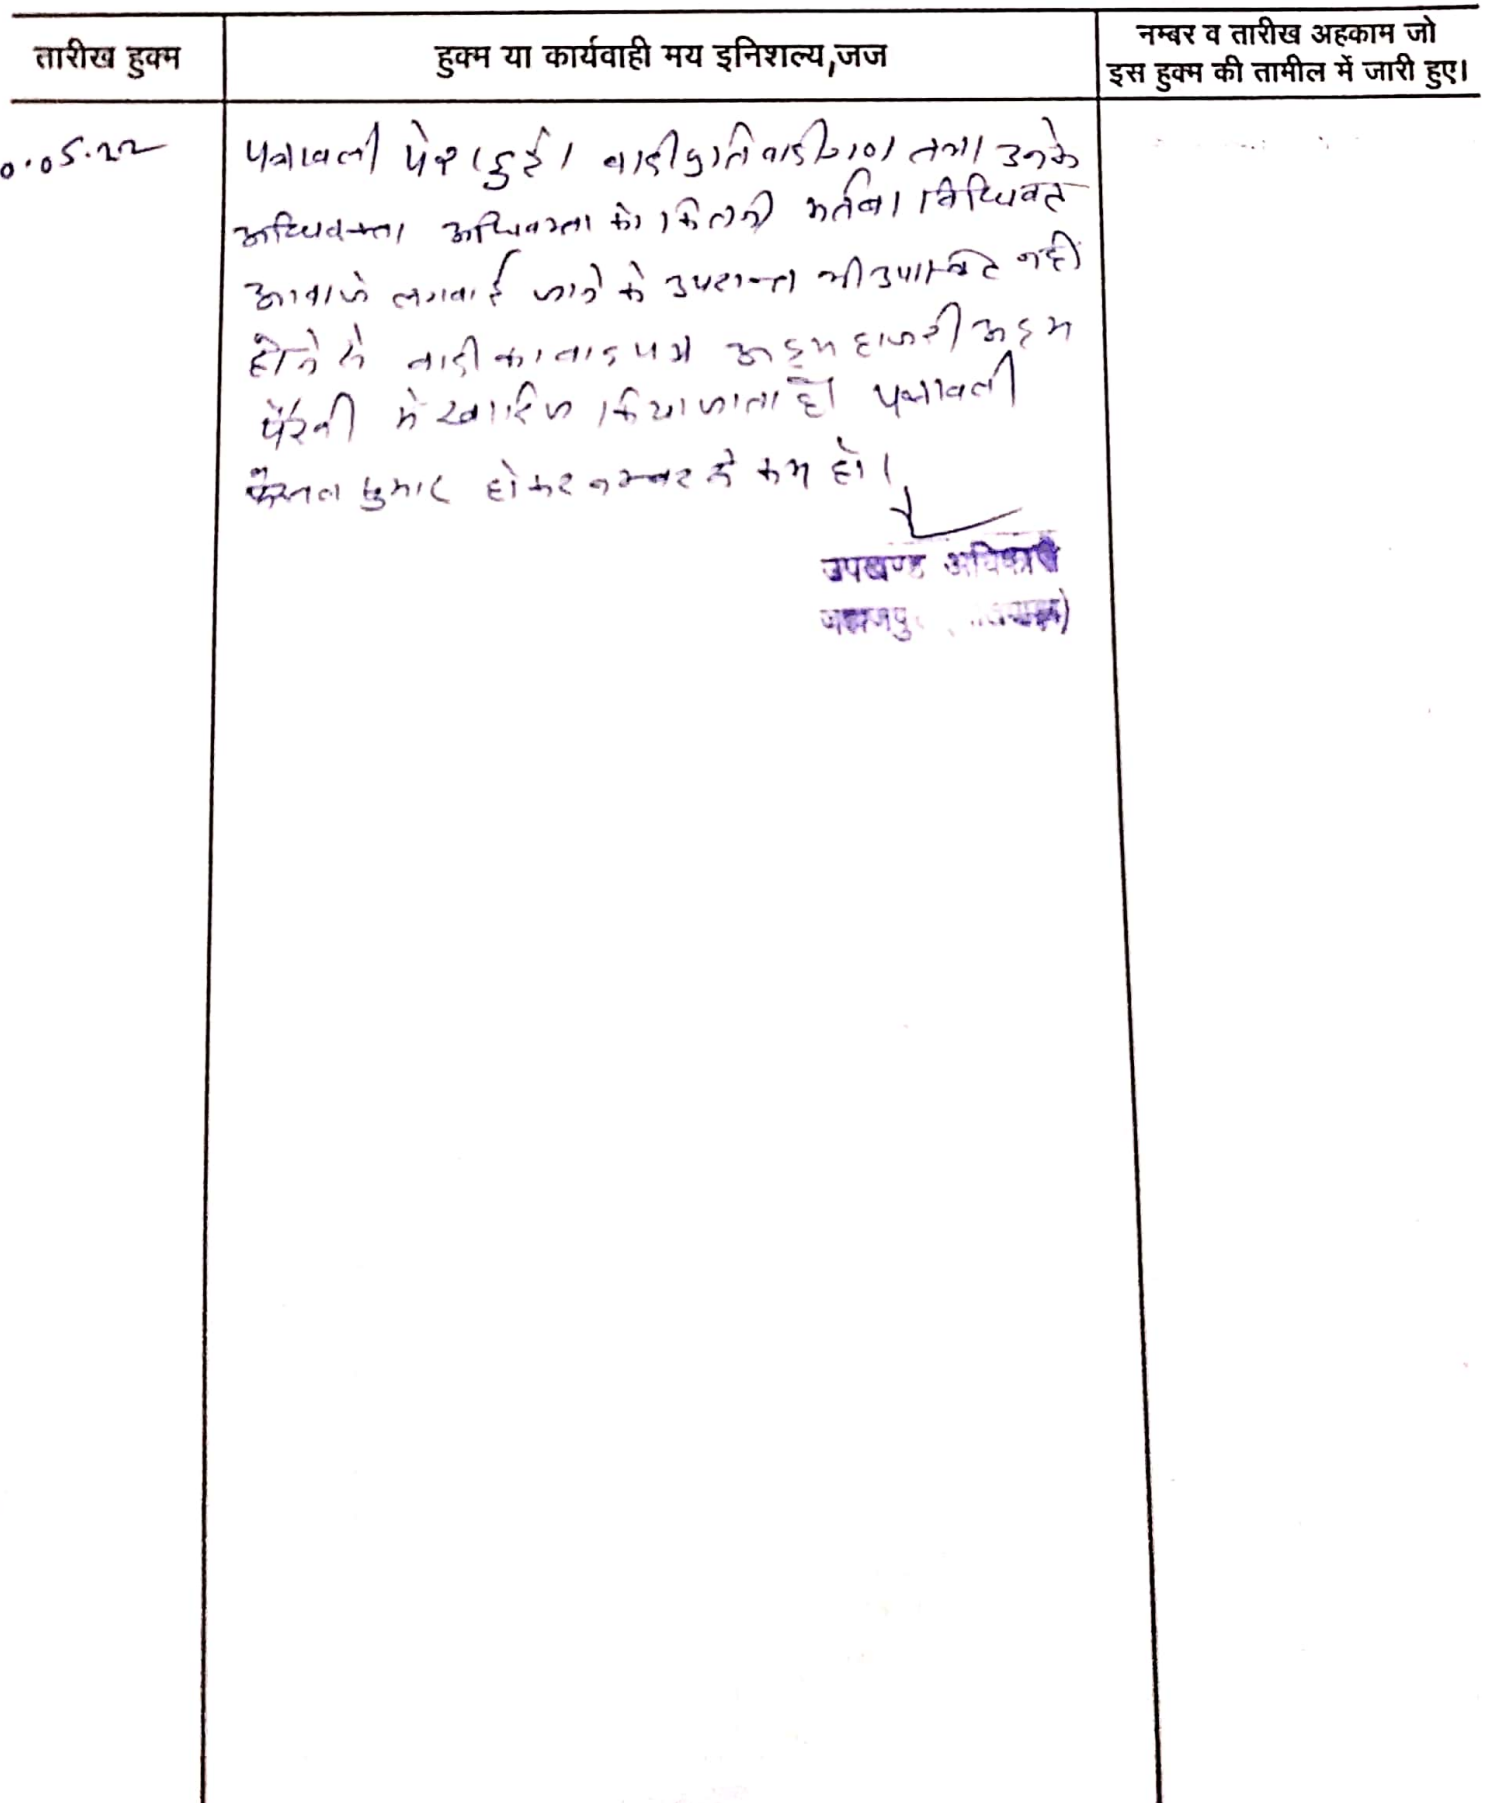 तारीख हुक्म
हुक्म या कार्यवाही मय इनिशल्य,जज
नम्बर व तारीख अहकाम जो
इस हुक्म की तामील में जारी हुए।
0.05.22
पत्रावली पेश हुई। वादी प्रतिवादीगण तथा उनके
अधिवक्ता अधिवक्ता को कितनी मर्तबा विधिवत
आवाजे लगवाई जाने के उपरान्त भी उपस्थित नही
होने से वादी का वाद पत्र अदम हाजरी अदम
पैरवी मे खारिज किया जाता है। पत्रावली
फैसल शुमार होकर नम्बर से कम हो।
उपखण्ड अधिकारी